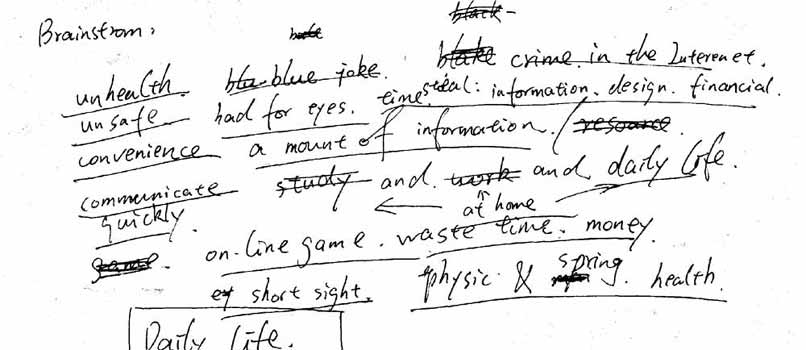 Brainstrom:
black -
unhealth. blue joke. crime in the Interenet.
unsafe had for eyes. time steal: information. design. financial.
convenience a mount of information. / resource.
communicate study and work and daily life.
quickly ← at home
game. on-line game. waste time. money.
short sight. physic & spring. health.
Daily life.